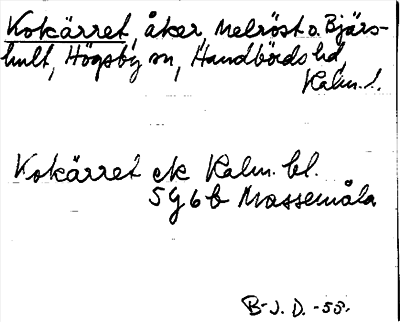 Kokärret, åker, Melröst o. Bjärs-
hult, Högsby sn, Handbörds hd,
Kalm. l.
Kokärret ek Kalm. bl.
5G6b Massemåla
B-J. D. -58.